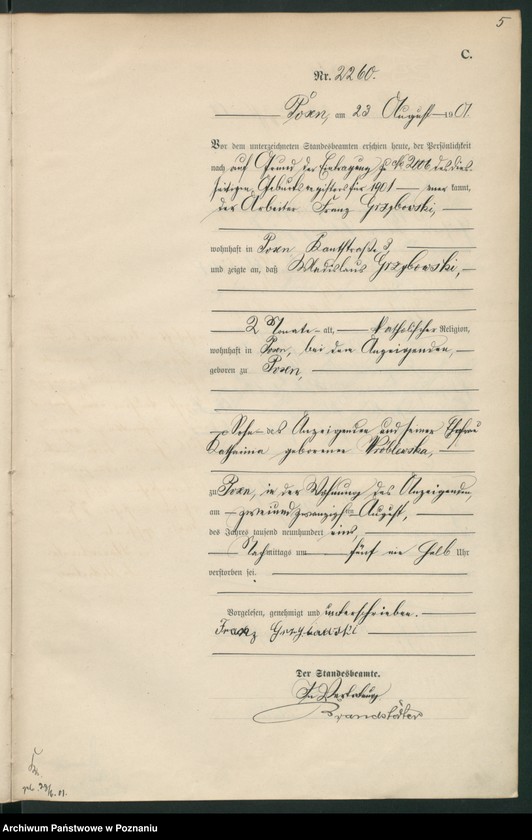 5
C.
Nr. 2260.
Posen, am 23 August 1901.
Vor dem unterzeichneten Standesbeamten erschien heute, der Persönlichkeit
nach auf Grund der Eintragung zu No 2006 des dies-
seitigen Geburtsregisters für 1901 kannt,
der Arbeiter Franz Grzybowski,
wohnhaft in Posen Kantstraße 3
und zeigte an, daß Wladislaus Grzybowski,
2 Monate alt, katholischer Religion,
wohnhaft in Posen, bei dem Anzeigenden,
geboren zu Posen,
Sohn des Anzeigenden und seiner Ehefrau
Katharina geborenen Wróblewska,
zu Posen, in der Wohnung des Anzeigenden
am zweiundzwanzigsten August,
des Jahres tausend neunhundert eins,
Nachmittags um fünf ein halb Uhr
verstorben sei.
Vorgelesen, genehmigt und unterschrieben.
Franz Grzybowski
Der Standesbeamte.
In Vertretung
Brandstäter
Archiwum Państwowe w Poznaniu